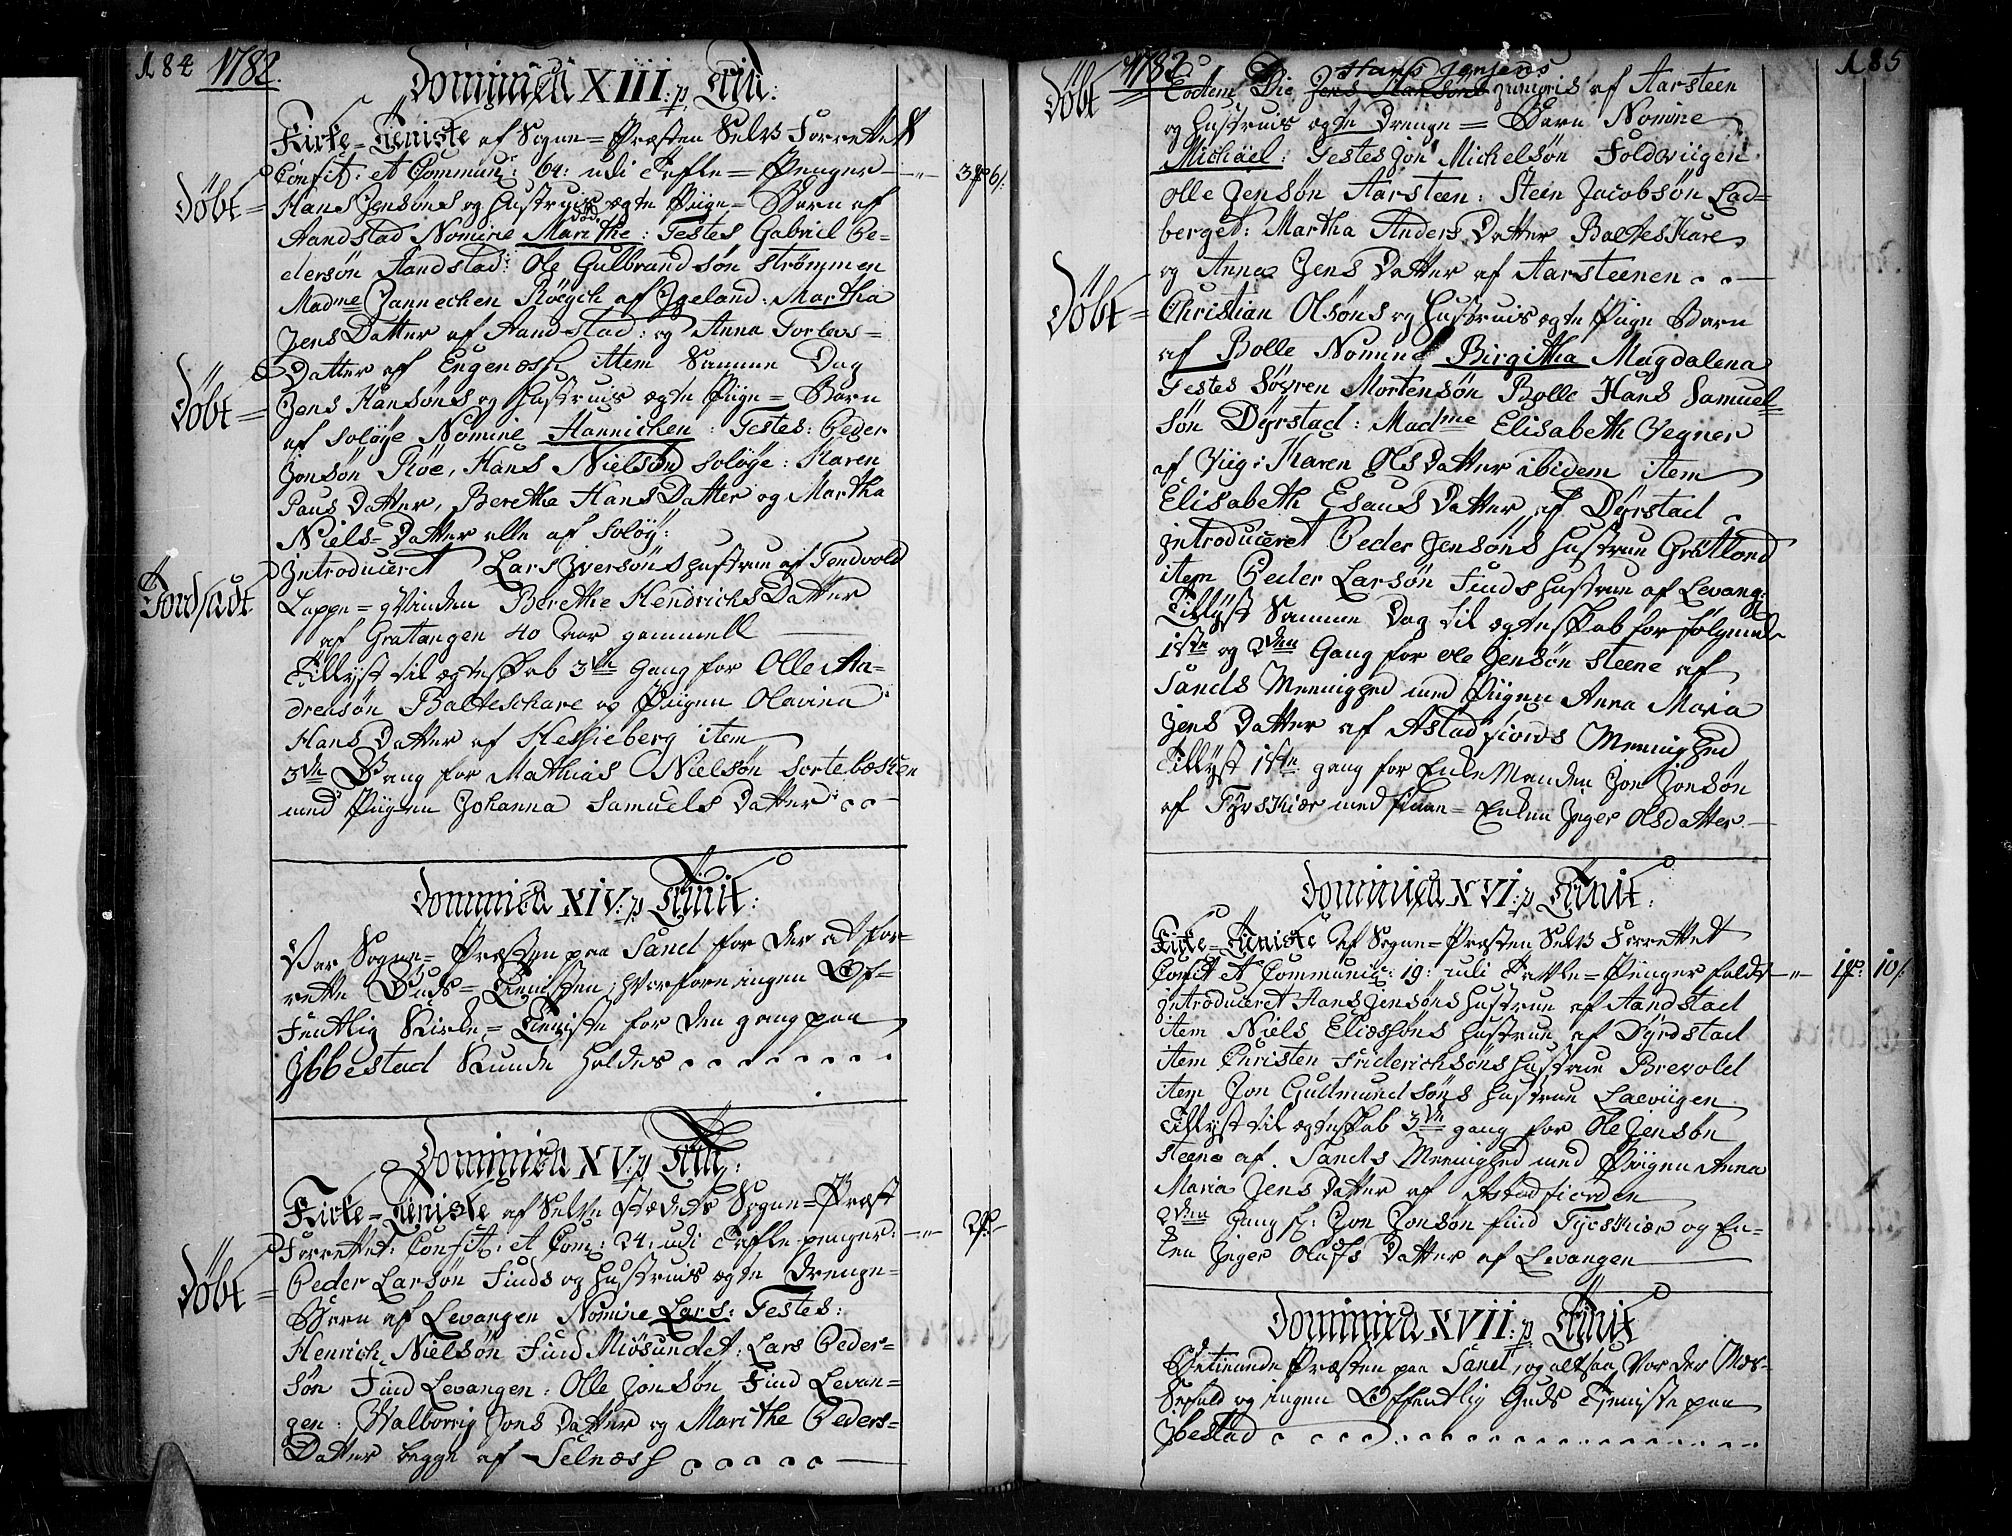 184 1782.
Dominica XIII: p Trin:
Kirke=Tieniste af Sogne=Præsten Selv Forrettet
Confit: et Commun: 64: udi Tafle=Penger 3 6
Døbt= Hans Jensøns og Hustrues ægte Piige=Barn af
død
Aandstad Nomine Marithe: Testes Gabriel Pe=
dersøn Aandstad: Ole Gulbrandsøn Strømmen
Madme Jannechen Röegch af Igeland: Martha
Jens Datter af Aandstad: og Anna Torlevs=
Datter af Engenæss item Samme Dag
Døbt= Jens Hansøns og Hustrues ægte Piige=Barn
af Soløye Nomine Hannichen: Testes: Peder
Jonsøn Röe, Hans Nielsøn Soløye: Karen
Paus Datter, Berethe Hans Datter og Martha
Niels=Datter alle af Soløy:
Introduceret Lars Iversøns Hustrue af Tendvold
Jordsadt Lappe=Qvinden Berethe Hendrichs Datter
af Gratangen 40 Aar gammell
Tillyst til ægteskab 3de Gang for Olle An=
dreasøn Balteschare og Piigen Olavina
Hans Datter af Hessieberg item
3de Gang for Mathias Nielsøn Sortebæsken
med Piigen Johanna Samuels Datter
Dominica XIV: p Trinit:
Var Sogne=Præsten paa Sand for der at for=
rette Guds=Tienisten; hvorfore ingen Of=
fentlig Kirke=Tieniste for den gang paa
Ibbestad Kunde holdes
Dominica XV: p Trin:
Kirke=Tieniste af Selve Stædets Sogne=Præst
Forrettet: Confit: et Com: 24: udi Tafle penger: 2
Døbt= Peder Larsøn Finds og Hustrues ægte Drenge=
Barn af Levangen Nomine Lars: Testes:
Henrich Nielsøn Find Miösundet: Lars Peder=
søn Find Levangen: Olle Jonsøn Find Levan=
gen: Walborrig Jons Datter og Marithe Peders=
Datter begge af Selnæss
1782 185
Hans Jensens
Døbt= Eodem Die Jens Hansøns junioris af Aarsteen
og Hustrues ægte Drenge=Barn Nomine
Michäel: Testes Jon Michelsøn Foldwiigen
Olle Jensøn Aarsteen: Stein Jacobsøn Lad=
berget: Martha Anders Datter BaltesKare
og Anna Jens Datter af Aarsteenen
Døbt= Christian Olsøns og Hustrues ægte Piige Barn
af Bolle Nomine Birgitha Magdalena
Testes Søyren Mortensøn Bolle Hans Samuel=
søn Dyrstad: Madme Elisabeth Wegner
af Viig: Karen Ols Datter ibidem item
Elisabeth Esaus Datter af Dyrstad
Introduceret Peder Jensøns Hustrue Gratlond
item Peder Larsøn Finds Hustrue af Levang:
Tillyst Samme Dag til ægteskab for følgende
1ste og 2den Gang for Ole Jensøn Steene af
Sands Menighed med Piigen Anna Maria
Jens Datter af Astadfiords Menighed
Tillyst 1ste gang for Enke Manden Jon Jonsøn
af Fyrskiær med finne=Enken Inger Olsdatter
Dominica XVI: p Trinit:
Kirke=Tieniste af Sogne=Præsten Selv Forrettet
Confit et Communic: 19: udi Tafle=Penger falds 1 10
Introduceret Hans Jensøns Hustrue af Aandstad
item Niels Eliæsøns Hustrue af Dyrdstad
item Christen Friderichsøns Hustrue Brevold
item Jon Gudmundsøns Hustrue Laeviigen
Tillyst til ægteskab 3de gang for Ole Jensøn
Steene af Sands Menighed med Piigen Anna
Maria Jens Datter af Astadfiorden
2den Gang for: Jon Jonsøn find Fyrskiær og En=
ken Inger Olufs Datter af Levangen
Dominica XVII: p Trinit
Betiende Præsten paa Sand, og altsaa var der Mes=
sefald og ingen Offentlig Guds Tieniste paa
Ibestad